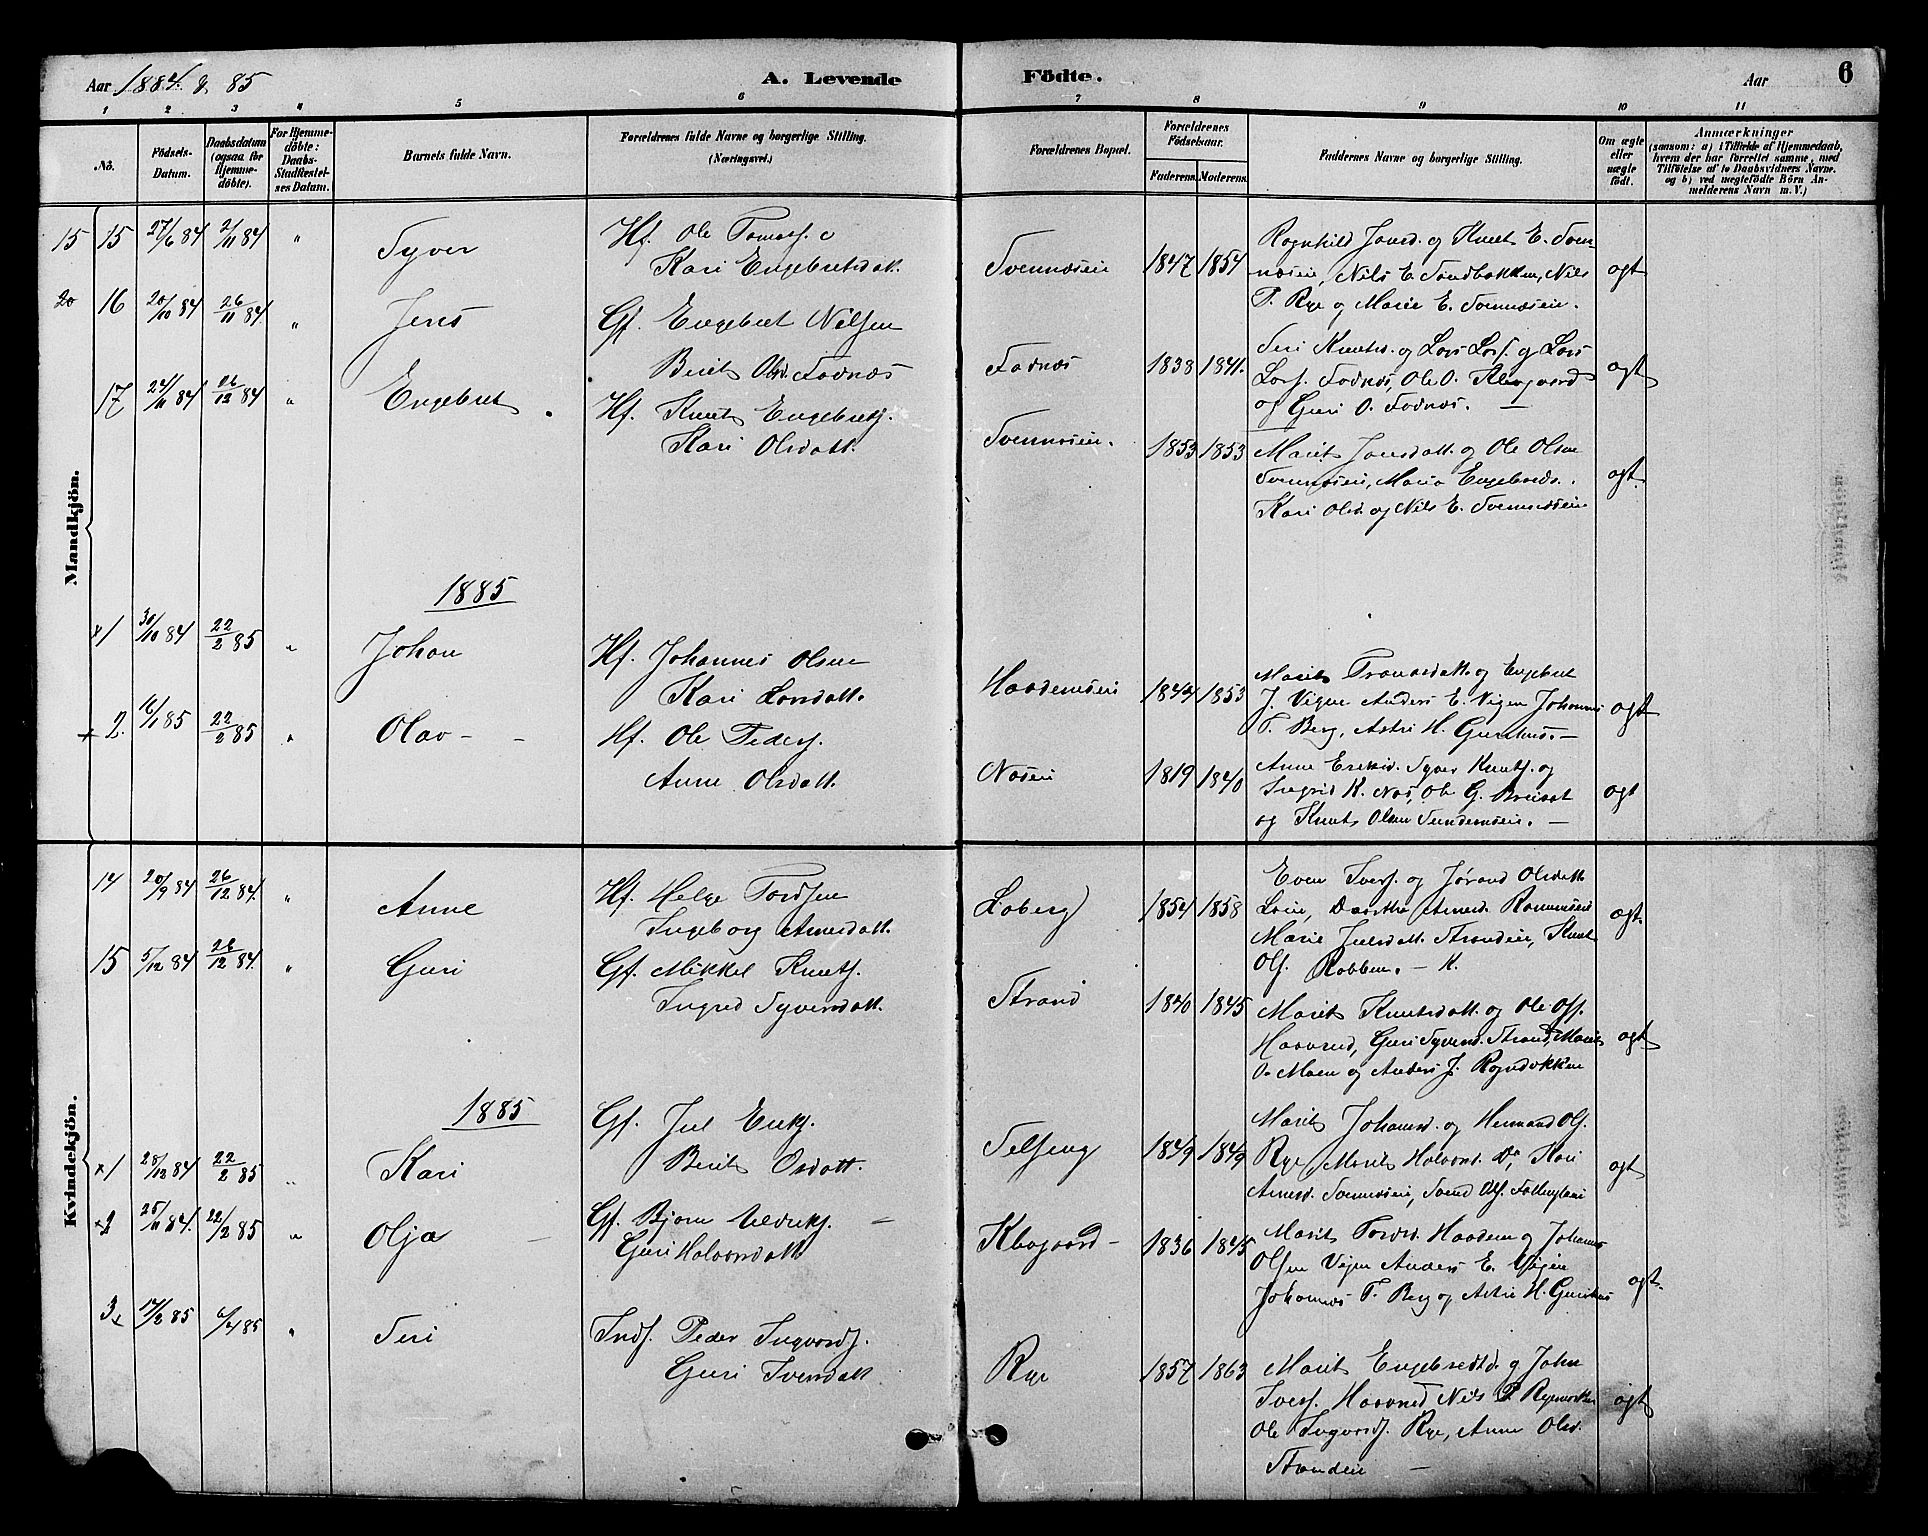 Aar 1884 & 85
A. Levende
Födte.
Aar
6
1 2 3 4 5 6 7 8 9 10 11
No.
Födsels-
Datum.
Daabsdatum
(ogsaa for
Hjemme-
döbte).
For Hjemme-
döbte:
Daabs-
Stadfæstel-
ses Datum.
Barnets fulde Navn.
Forældrenes fulde Navne og borgerlige Stilling.
(Næringsvei.)
Forældrenes Bopæl.
Forældrenes
Födselsaar.
Faderens. Moderens.
Faddernes Navne og borgerlige Stilling.
Om ægte
eller
uægte
födt.
Anmærkninger
(saasom: a) i Tilfælde af Hjemmedaab,
hvem der har forrettet samme, med
Tilföielse af to Daabsvidners Navne.
og b) ved uægtefödte Börn An-
melderens Navn m. V.)
Mandkjön.
15 15 27/6 84 2/11 84 " Syver
Hf. Ole Tomass. o
Kari Engebretsdat.
Svennæseie 1847 1854
Rognhild Jonsd. og Knut E. Sven-
næseie, Nils E. Sandbakken, Nils
T. Rye og Marie E. Svennæseie.
ægt
20 16 20/10 84 26/11 84 " Jens
Gf. Engebret Nilsen
Berit Olsd. Fodnæs
Fodnæs 1838 1841.
Siri Knutsd. og Lars Lars. og Lars
Lars. Fodnæs, Ole O. Klægaard
og Guri O. Fodnæs. —
ægt
17 24/11 84 26/12 84 " Engebret
Hf. Knut Engebrets.
Kari Olsdatt.
Svennæseie. 1853 1853
Marit Jonsdatt. og Ole Olsen
Svennæseie, Maria Engebretsd.
Kari Olsd. og Nils E. Svennæseie
ægt.
1885
x1 30/10 84 22/2 85 " Johan
Hf. Johannes Olsen
Kari Larsdatt.
Haademseie 1844 1853
Marit Tronasdatt. og Engebret
J. Vigen Anders E. Vigen Johannes
T. Berg, Astri H. Gurihus. —
ægt
x 2. 16/1 85 22/2 85 " Olav - -
Hf. Ole Peders.
Anne Olsdatt.
Næseie 1819 1840
Anne Eriksd. Syver Knuts. og
Ingrid K. Næs, Ole G.
og Knut Olsen Sundemseie. —
ægt
Kvindekjön.
14 20/9 84 26/12 84. " Anne
Hf. Helge Tordsen
Ingeborg Arnesdatt.
Loberg 1854 1858
Even Ivers. og Jörand Olsdatt.
Loeie, Dorthe Arnesd.
Marie Julsdatt. Strandeie, Knut
Ols. Robben. — K.
ægt.
15 5/12 84 26/12 84. " Guri
Gf. Mikkel Knuts.
Ingrid Syversdatt.
Strand 1840 1845
Marit Knutsdatt. og Ole Ols.
Haavrud, Guri Syversd. Strand, Marit
O. Moen og Anders J. Rogndokken
ægt
1885
x1 28/12 84 22/2 85 " Kari
Gf. Jul Eriks.
Berit Olsdatt.
Selseng 1849 1849
Marit Johannsd. og Hermand Ols.
Rye, Marit Halvorsd. Do, Kari
Arnesd. Svennæseie, Svend Ols.
ægt
x2 25/11 84. 22/2 85 " Olja -
Gf. Bjørn Uldriks. -
Guri Halvorsdatt.
Klægaard - 1836 1845
Marit Tordsd. Haadem og Johannes
Olsen Vigen Anders E. Vigen
Johannes T. Berg og Astri H. Gurihus
ægt.
3x 17/2 85 6/4 85 " Siri
Inds. Peder Ingvards.
Guri Iversdatt.
Rye 1857 1863
Marit Engebretsd. og John
Ivers. Haavrud Nils P.
Ole Ingvards. Rye, Anne Olsd.
Strandeie —
ægt